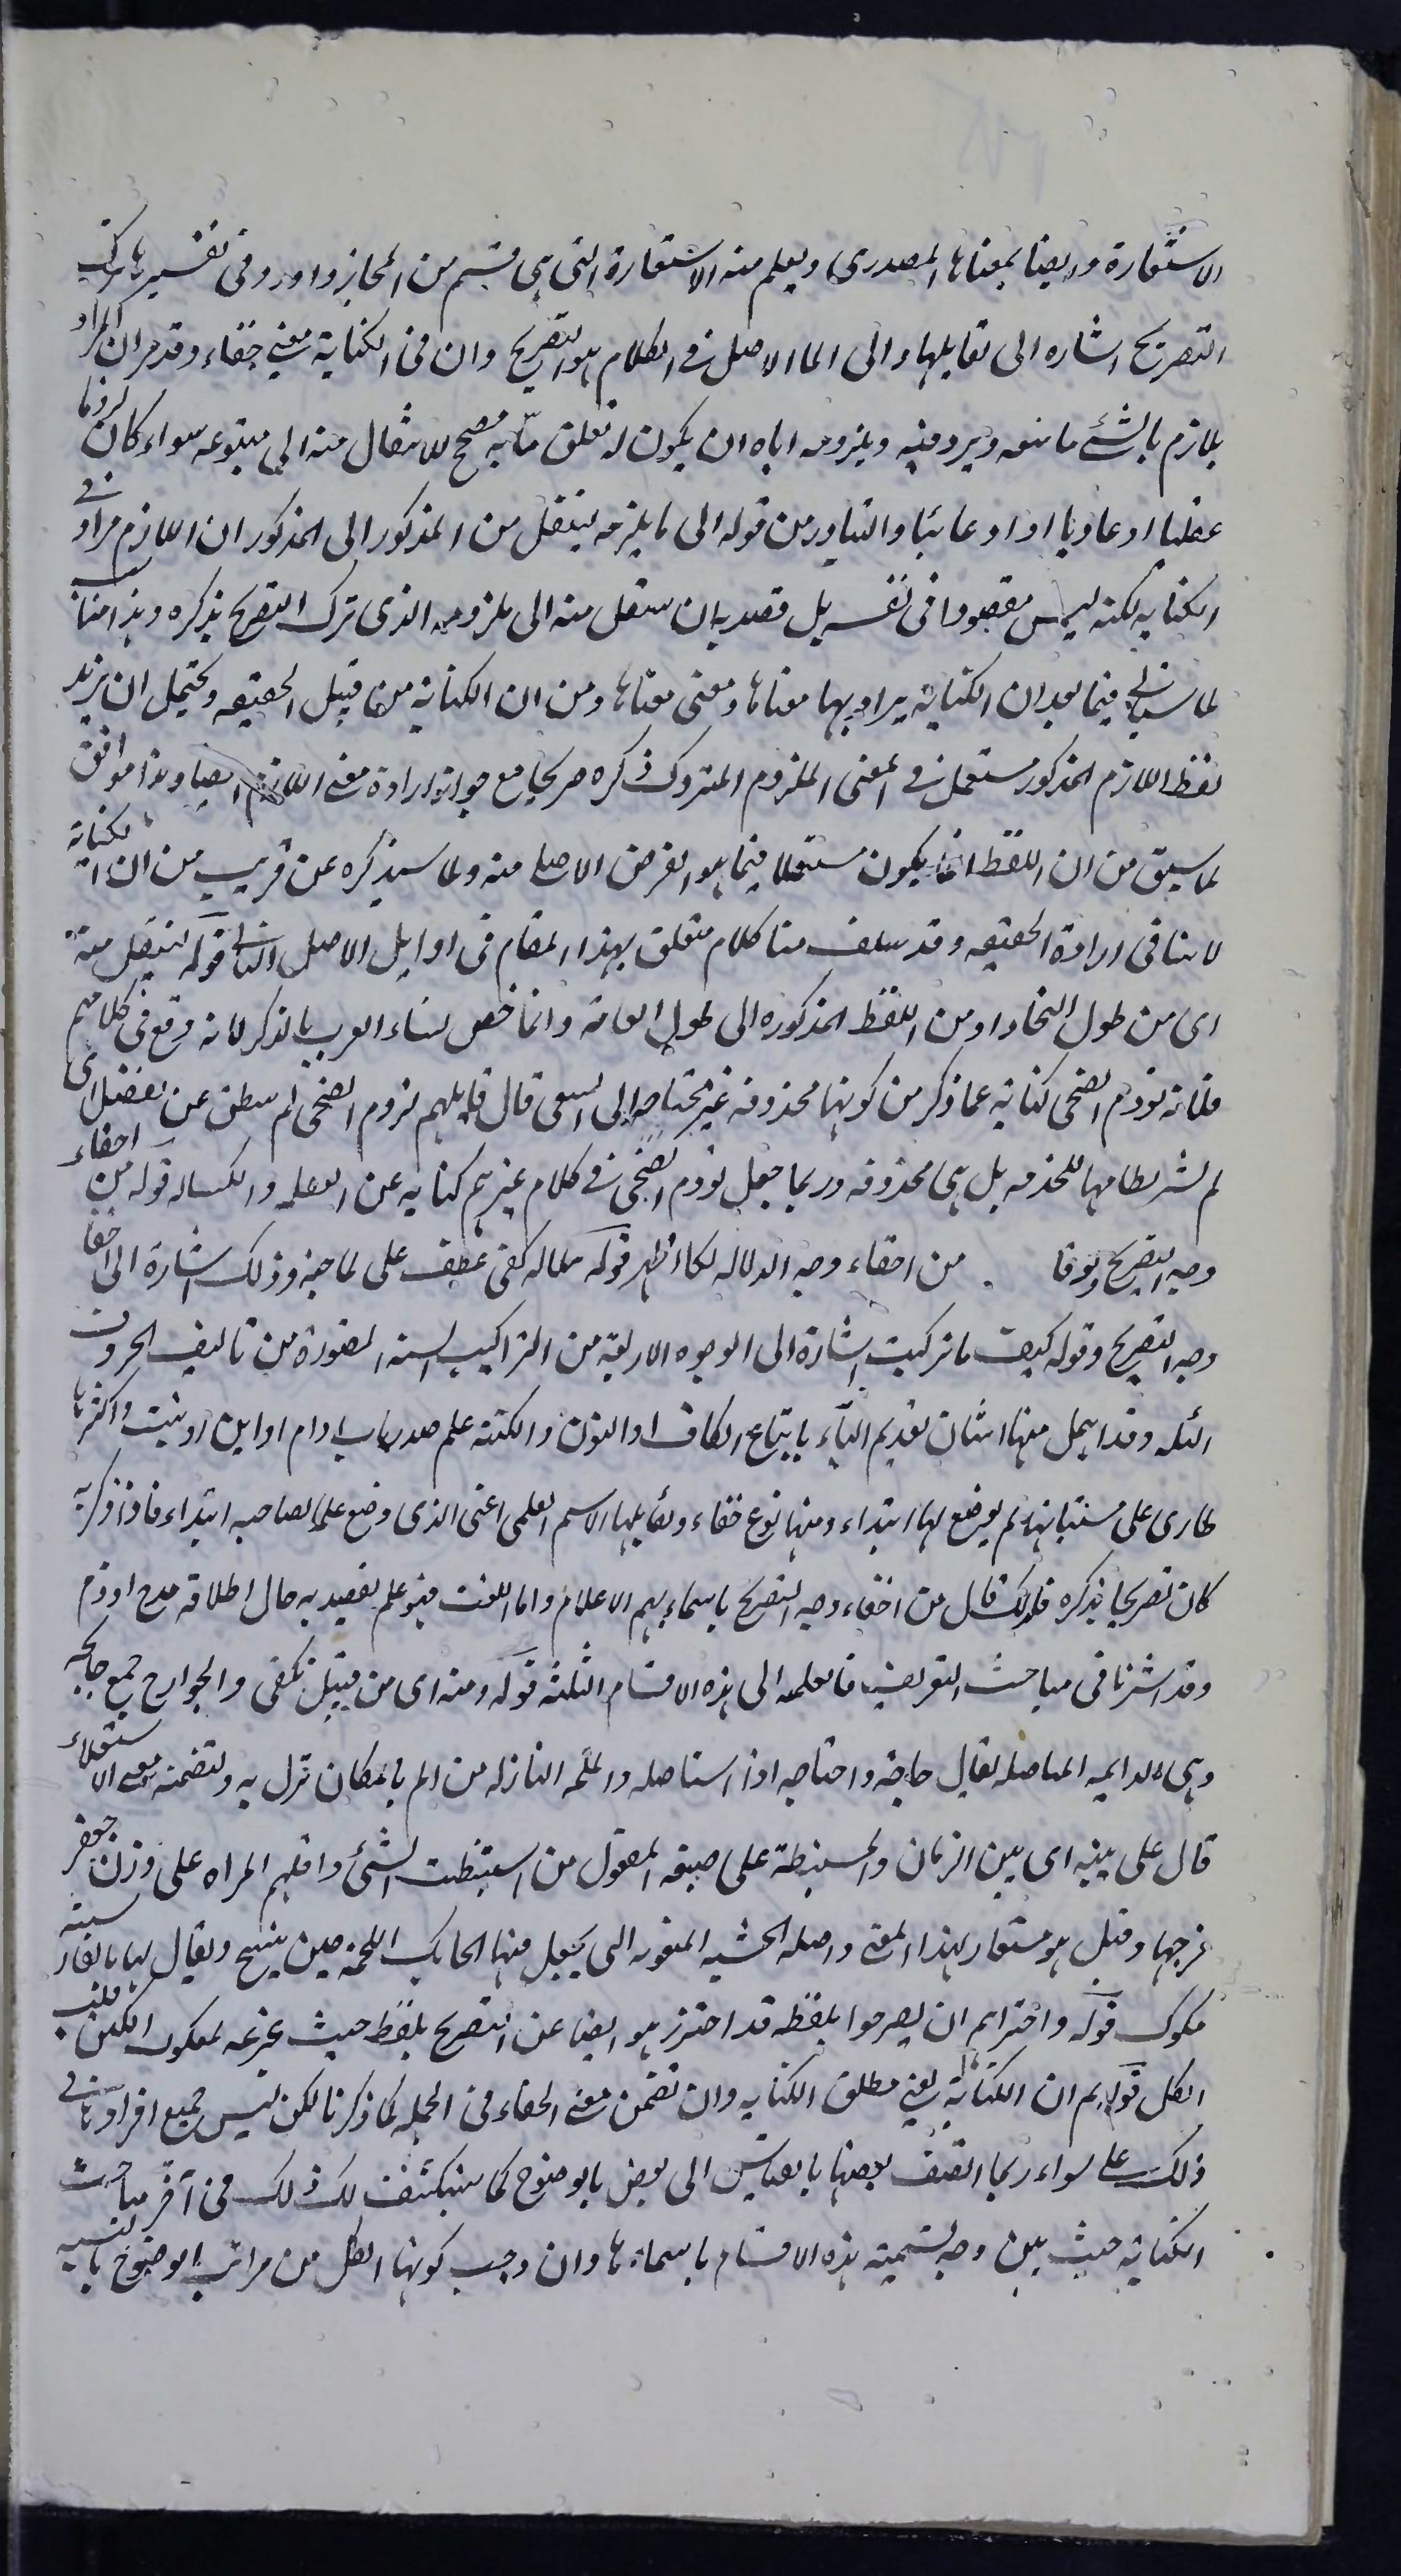 الاستعارة وايضا بمعناها المصدرى ويعلم منه الاستعارة التى هى قسم من المجاز واورد فى تفسيرها ترك
التصريح اشاره الى تقابلهما والى ان الاصل فى الكلام هو التصريح وان فى الكناية معنى خفاء وقد مر ان المراد
بلازم الشئ ما يتبعه ويردفه وبلزومه اياه ان يكون له تعلق ما به مصحح للانتقال منه الى متبوعه سواء كان لزوما
عقليا او عاديا او ادعائيا والتبادر من قوله الى ما يلزمه لينتقل من المذكور الى المذكور ان اللازم مراد فى
الكنايه لكنه ليس مقصودا فى نفسه بل قصد به ان ينتقل منه الى ملزومه الذى ترك التصريح بذكره وهذا مناسب
لما سياتى فيما بعد ان الكناية يراد بها معناها ومعنى معناها ومن ان الكناية من قبيل الحقيقه ويحتمل ان يريد
لفظ اللازم المذكور مستعمل فى المعنى الملزوم المتروك ذكره صريحا مع جواز ارادة معنى اللازم ايضا وهذا موافق
لما سبق من ان اللفظ انما يكون مستعملا فيما هو الغرض الاصلى منه ولما سيذكره عن قريب من ان الكناية
لا ينافى ارادة الحقيقه وقد سلف منا كلام متعلق بهذا المقام فى اوايل الاصل الثانى قوله لينتقل منه
اى من طول النجاد او من اللفظ المذكوره الى طول القامة وانما خص نساء العرب بالذكر لانه وقع فى كلامهم
فلانة نؤوم الضحى كناية عما ذكر من كونها مخدومة غير محتاجه الى السعى قال قايلهم نؤوم الضحى لم تنطق عن تفضل اى
لم تشد نطاقها للخدمه بل هى مخدومه وربما جعل نؤوم الضحى فى كلام غيرهم كنايه عن الغفله والكساله قوله من اخفاء
وجه التصريح من اخفاء وجه الدلاله لكان اظهر قوله كنى عطف على لما فيه وذلك اشارة الى اخفاء
وجه التصريح وقوله كيف ما تركبت اشارة الى الوجوه الاربعة من التراكيب الستة المتصورة من تاليف الحروف
الثلثه وقد اهمل منها اثنان تقديم الياء باتباع الكاف او النون والكنية علم صدر باب او ام او ابن او بنت واكثرها
طارى على مسمياتها لم يوضع لها ابتداء ففيها نوع خفاء ويقابلها الاسم العلمى اعنى الذى وضع علما لصاحبه ابتداء فاذا ذكر به
كان تصريحا بذكره فلذلك قال من اخفاء وجه التصريح باسمائهم الاعلام واما اللقب فهو علم يقصد به حال اطلاقه مدح او ذم
وقد اشرنا فى مباحث التعريف فالعلمه الى هذه الاقسام الثلثة قوله ومنه اى من قبيل نكنى والجوايح جمع جايحه
وهى الداهيه المستاصله يقال جاحه واجتاحه اذا استاصله والملمه النازله من الم بالمكان نزل به ولتضمنه معنى الاستعلاء
قال على بنيه اى بين الزمان والمستنبطة على صيغه المفعول من استنبطت الشئ وافلهم المراه على وزن جعفر
فرجها وقيل هو مستعار لهذا المعنى واصله الخشبه المنقوبه التى يجعل فيها الحايك اللحمه حين ينسج ويقال لها بالفارسيه
مكوك قوله واحترامهم ان يصرحوا بلفظه قد احترز هو ايضا عن التصريح بلفظه حيث
الكل قوله ثم ان الكناية يعنى مطلق الكنايه وان تضمن معنى الخفاء فى الجمله لما ذكرنا لكن ليس جميع افرادها فى
ذلك على سواء ربما اتصف بعضها بالقياس الى بعض بالوضوح كما سينكشف لك ذلك فى آخر مباحث
الكناية حيث يبين وجه تسمية هذه الاقسام باسمائها وان وجب كونها الكل من مراتب الوضوح بالنسبه